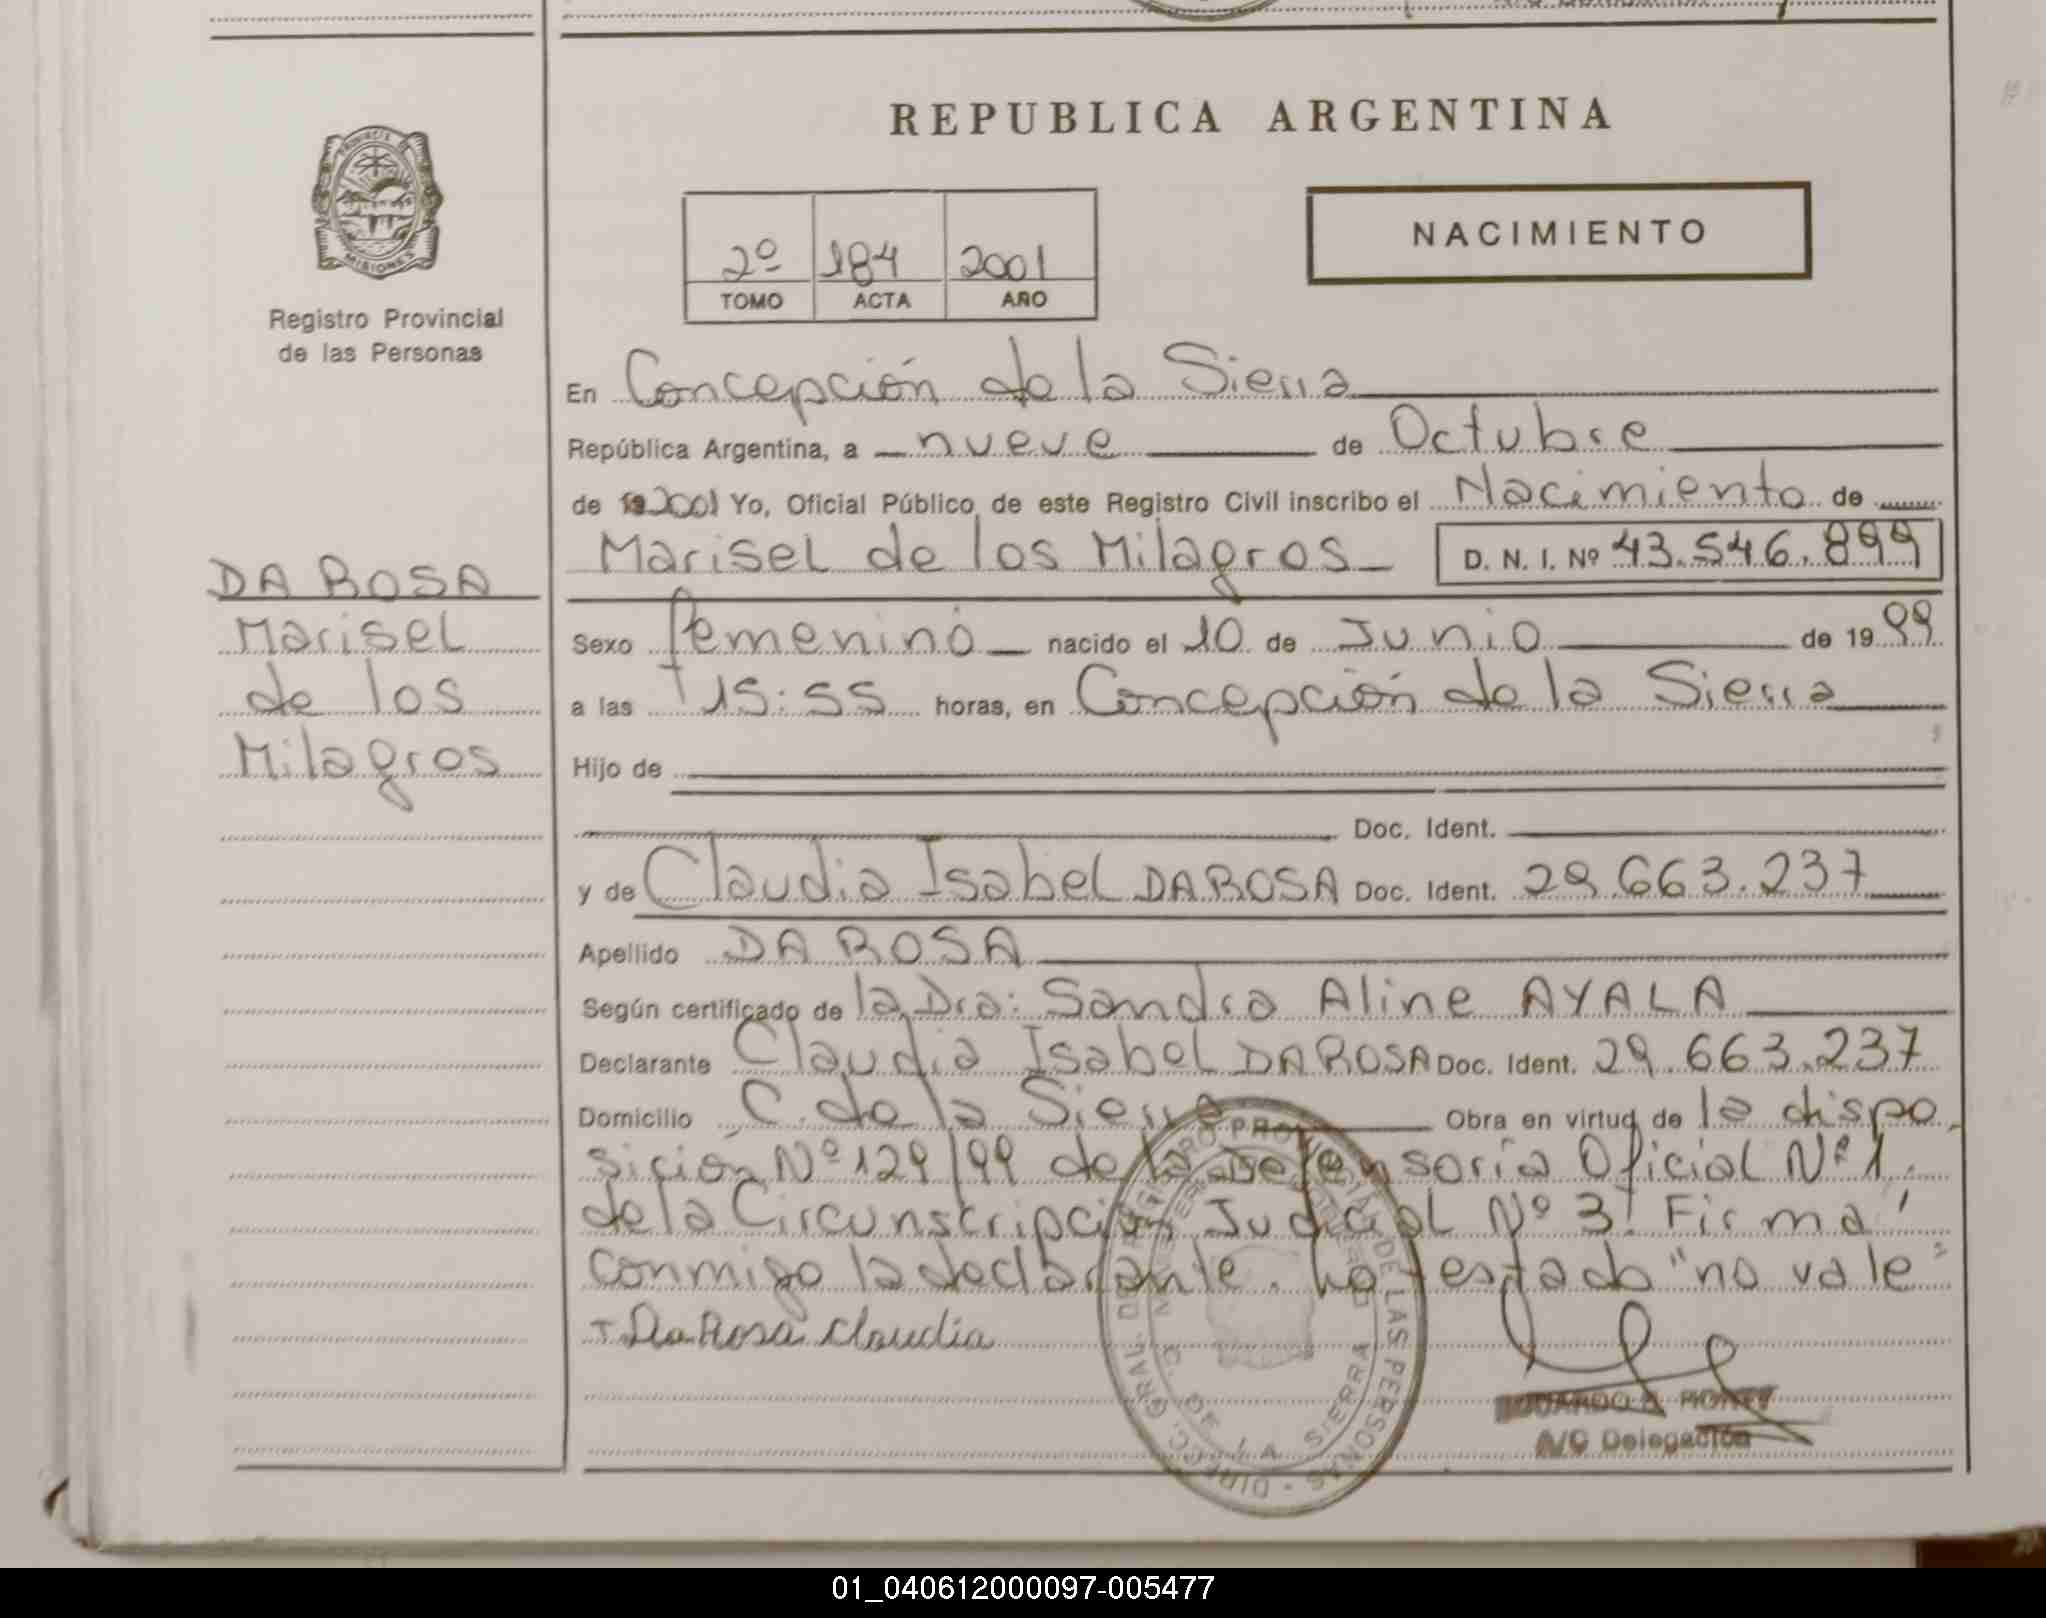 REPUBLICA ARGENTINA
PROVINCIA DE MISIONES
Registro Provincial
de las Personas
2º 184 2001
TOMO ACTA AÑO
NACIMIENTO
En Concepción de la Sierra
República Argentina, a nueve de Octubre
de 192001 Yo, Oficial Público de este Registro Civil inscribo el Nacimiento de
Marisel de los Milagros D. N. I. Nº 43.546.899
DA ROSA
Marisel
de los
Milagros
Sexo femenino nacido el 10 de Junio de 1999
a las 15:55 horas, en Concepción de la Sierra
Hijo de
Doc. Ident.
y de Claudia Isabel DA ROSA Doc. Ident. 29.663.237
Apellido DA ROSA
Según certificado de la Dra: Sandra Aline AYALA
Declarante Claudia Isabel DA ROSA Doc. Ident. 29.663.237
Domicilio C. de la Sierra Obra en virtud de la dispo
sición Nº 129/99 de la Defensoría Oficial Nº 1.
de la Circunscripción Judicial Nº 3! Firma
conmigo la declarante. ho testado "no vale"
Da Rosa Claudia
DIRECC. GRAL. DEL REGISTRO PROVINCIAL DE LAS PERSONAS
C. DE LA SIERRA
A/C Delegación
01_040612000097-005477